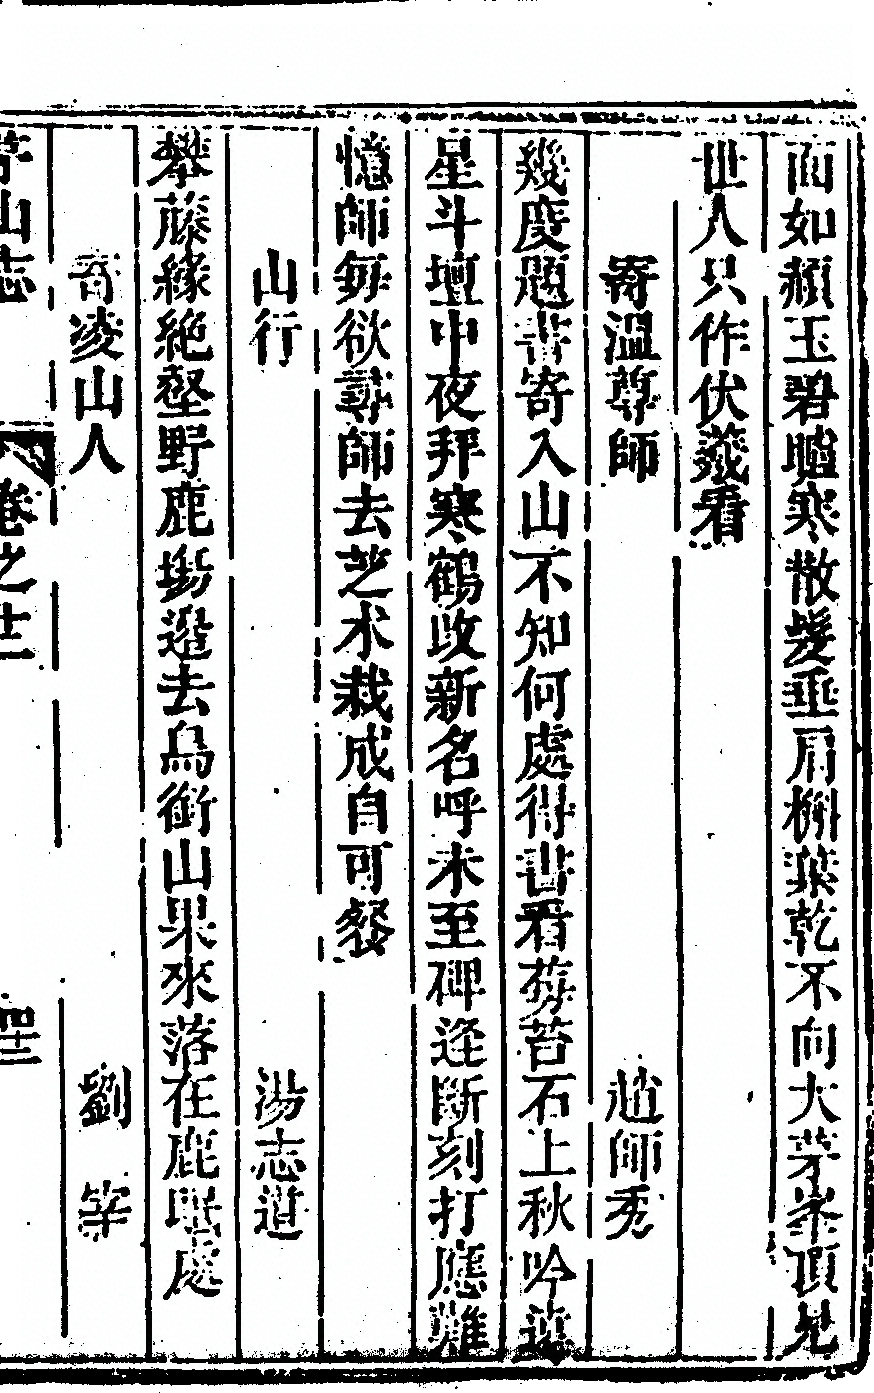 面如頳玉碧瞳寒散髮垂肩槲葉乾不向大茅峯頂見
世人只作伏羲看
寄溫尊師 趙師秀
幾度題書寄入山不知何處得書看莓苔石上秋吟
星斗壇中夜拜寒鶴改新名呼未至碑逢斷刻打應難
憶師每欲尋師去芝术栽成自可餐
山行 湯志道
攀藤緣絶壑野鹿場邉去烏銜山果來落在鹿眠處
寄凌山人 劉宰
茅山志 卷之十二 四十三